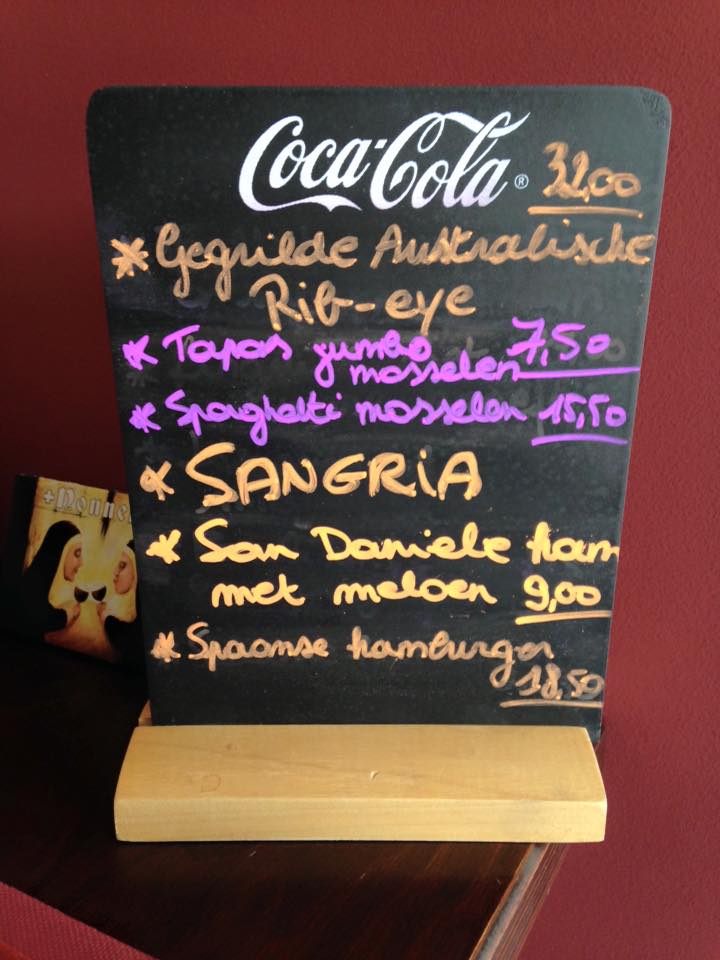 Coca-Cola ® 32,00
* Gegrilde Australische
Rib-eye
* Tapas jumbo 7,50
mosselen
* Spaghetti mosselen 15,50
* SANGRiA
* San Daniele ham
met meloen 9,00
* Spaanse hamburger
18,50
+Nonne